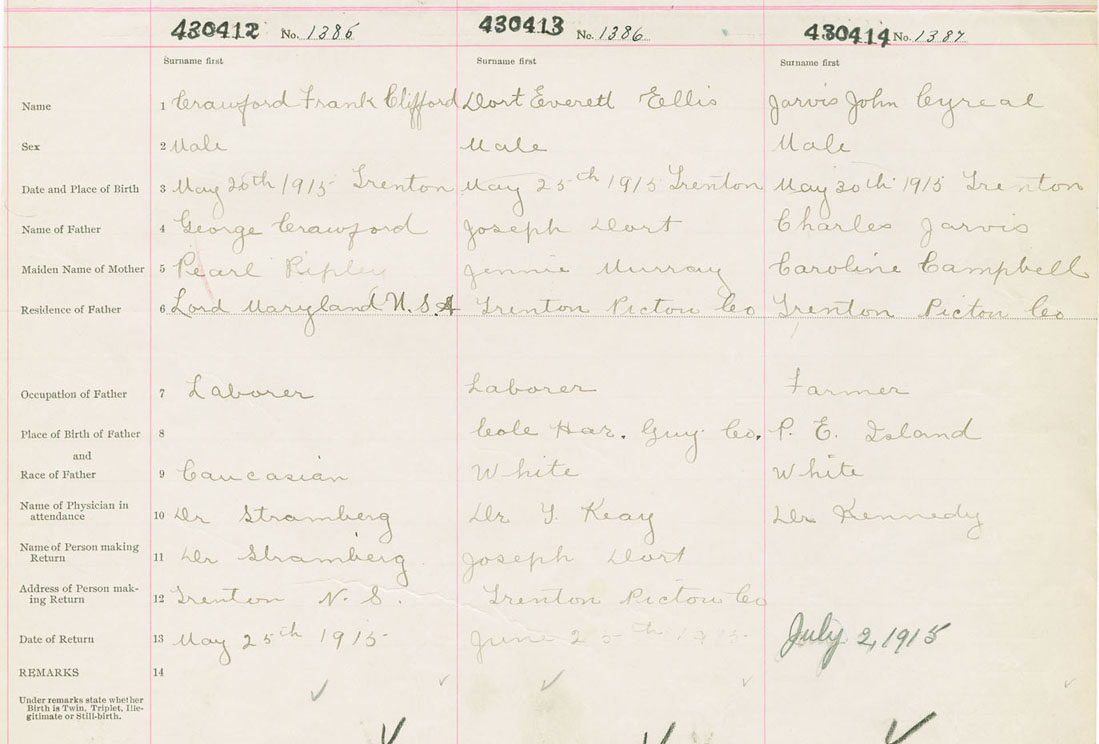 430412 No. 1385 430413 No. 1386 430414 No. 1387
Surname first Surname first Surname first
Name 1 Crawford Frank Clifford Dort Everett Ellis Jarvis John Cyreal
Sex 2 Male Male Male
Date and Place of Birth 3 May 20th 1915 Trenton May 25th 1915 Trenton May 20th 1915 Trenton
Name of Father 4 George Crawford Joseph Dort Charles Jarvis
Maiden Name of Mother 5 Pearl Ripley Jennie Murray Caroline Campbell
Residence of Father 6 Lord Maryland U.S.A Trenton Pictou Co Trenton Pictou Co
Occupation of Father 7 Laborer Laborer Farmer
Place of Birth of Father 8 Cole Har. Guy. Co. P. E. Island
and
Race of Father 9 Caucasian White White
Name of Physician in
attendance 10 Dr Stramberg Dr Y. Keay Dr Kennedy
Name of Person making
Return 11 Dr Stramberg Joseph Dort
Address of Person mak-
ing Return 12 Trenton N. S. Trenton Pictou Co
Date of Return 13 May 25th 1915 June 25th 1915 July 2, 1915
REMARKS 14
Under remarks state whether
Birth is Twin, Triplet, Ille-
gitimate or Still-birth.